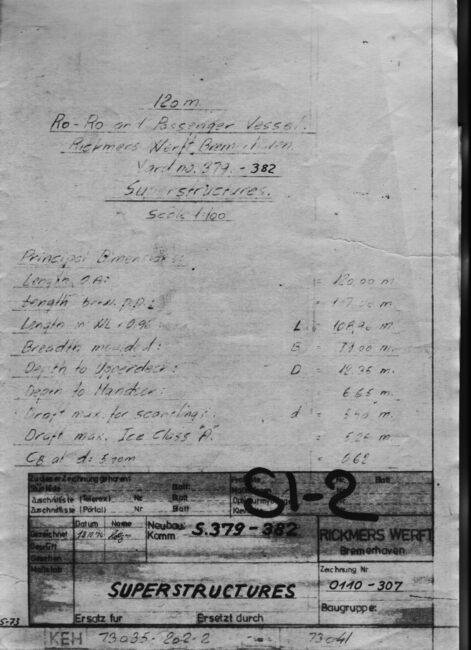 120 m.
Ro-Ro and Passenger Vessel.
Rickmers Werft Bremerhaven.
Yard no. 379.-382
Superstructures.
Scale 1:100.
Principal Dimensions:
Length, O.A: = 120,00 m
Length betw. p.p. = m
Length in WL × 0.96 L = 108,96 m.
Breadth moulded: B = m
Depth to Upperdeck: D = m.
Depth to Maindeck: 6.65 m.
Draft max. for scantlings: d = m.
Draft max. Ice Class "A". = m
CB at d= 5.70m = 0.62
Zu dieser Zeichnung gehören:
Stückliste Nr. Blatt Nr. Blatt
Zuschnittliste (Telerex) Nr Blatt
Zuschnittliste (Portal) Nr Blatt
S1-2
Datum Name
Gezeichnet
Geprüft
Gesehen
Maßstab
Neubau: S.379-382
Komm.
RICKMERS WERFT
Bremerhaven
Zeichnung Nr.
0110-307
Baugruppe:
SUPERSTRUCTURES
Ersatz für Ersetzt durch
S-73
KEH 73035-202-2 73041